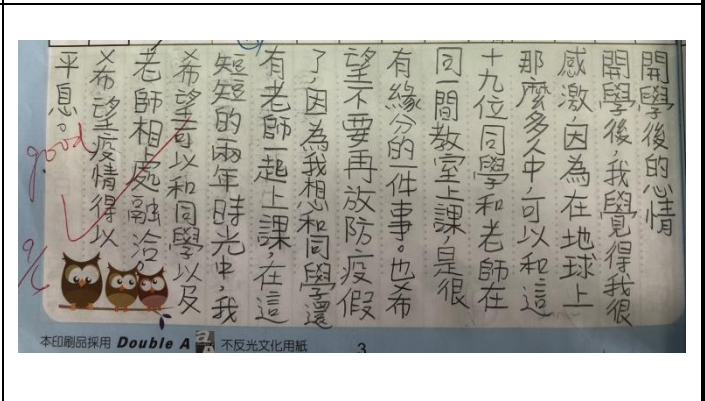 開學後的心情
開學後,我學覺得我很
感激,因為在地球上
那麼多人中,可以和這
十九位同學和老師在
同一間教室上課,是很
有緣分的一件事。也希
望不要再放防疫假
了,因為我想和同學還
有老師一起上課,在這
短短的兩年時光中,我
希望可以和同學以及
老師相處融洽。
希望疫情得以
平息。
good
9/6
本印刷品採用 Double A 不反光文化用紙
3